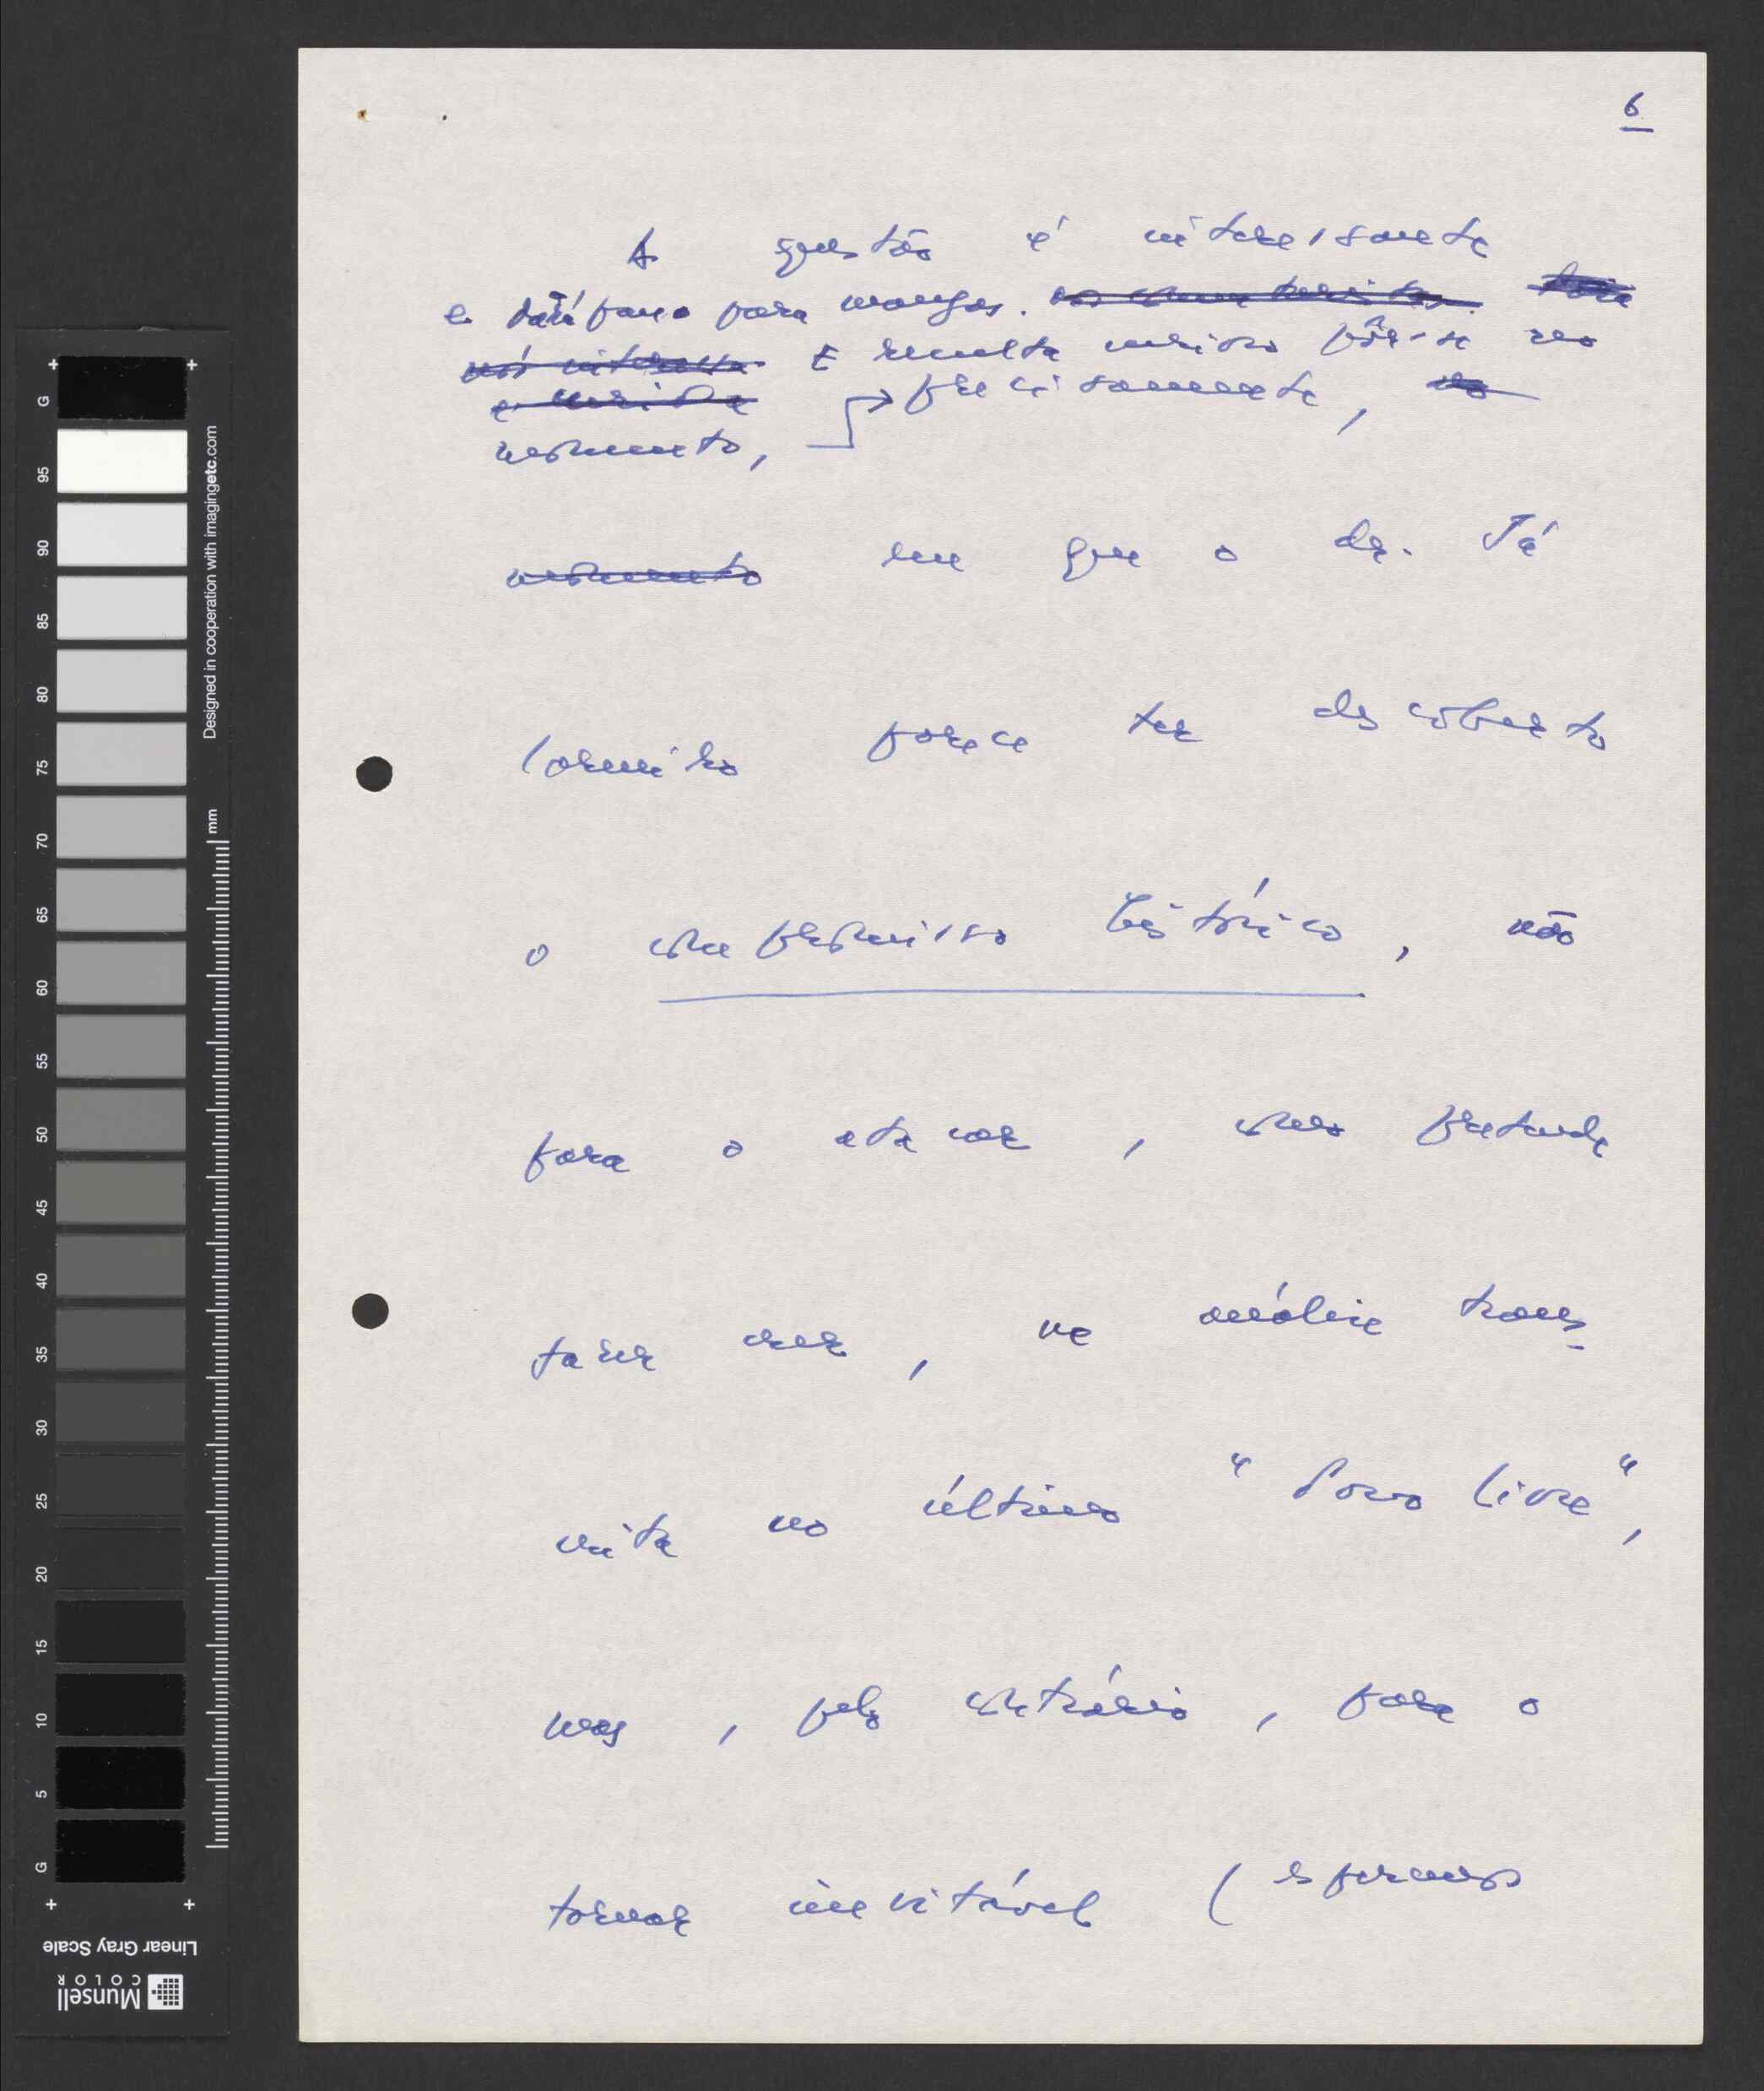 6
A questão é interessante
e dará pano para mangas.
nós interessa E pôr-se no
precisamente, no
momento,
momento em que o dr. Sá
Carneiro parece ter descoberto
o compromisso histórico, não
para o atacar, como pretende
fazer crer, na análise trans-
crita no último "Povo Livre",
mas, pelo contrário, para o
tornar inevitável (esperemos
Designed in cooperation with imagingetc.com
mm
G
95
90
85
80
75
70
65
60
55
50
45
40
35
30
25
20
15
10
5
G
Linear Gray Scale
Munsell
COLOR